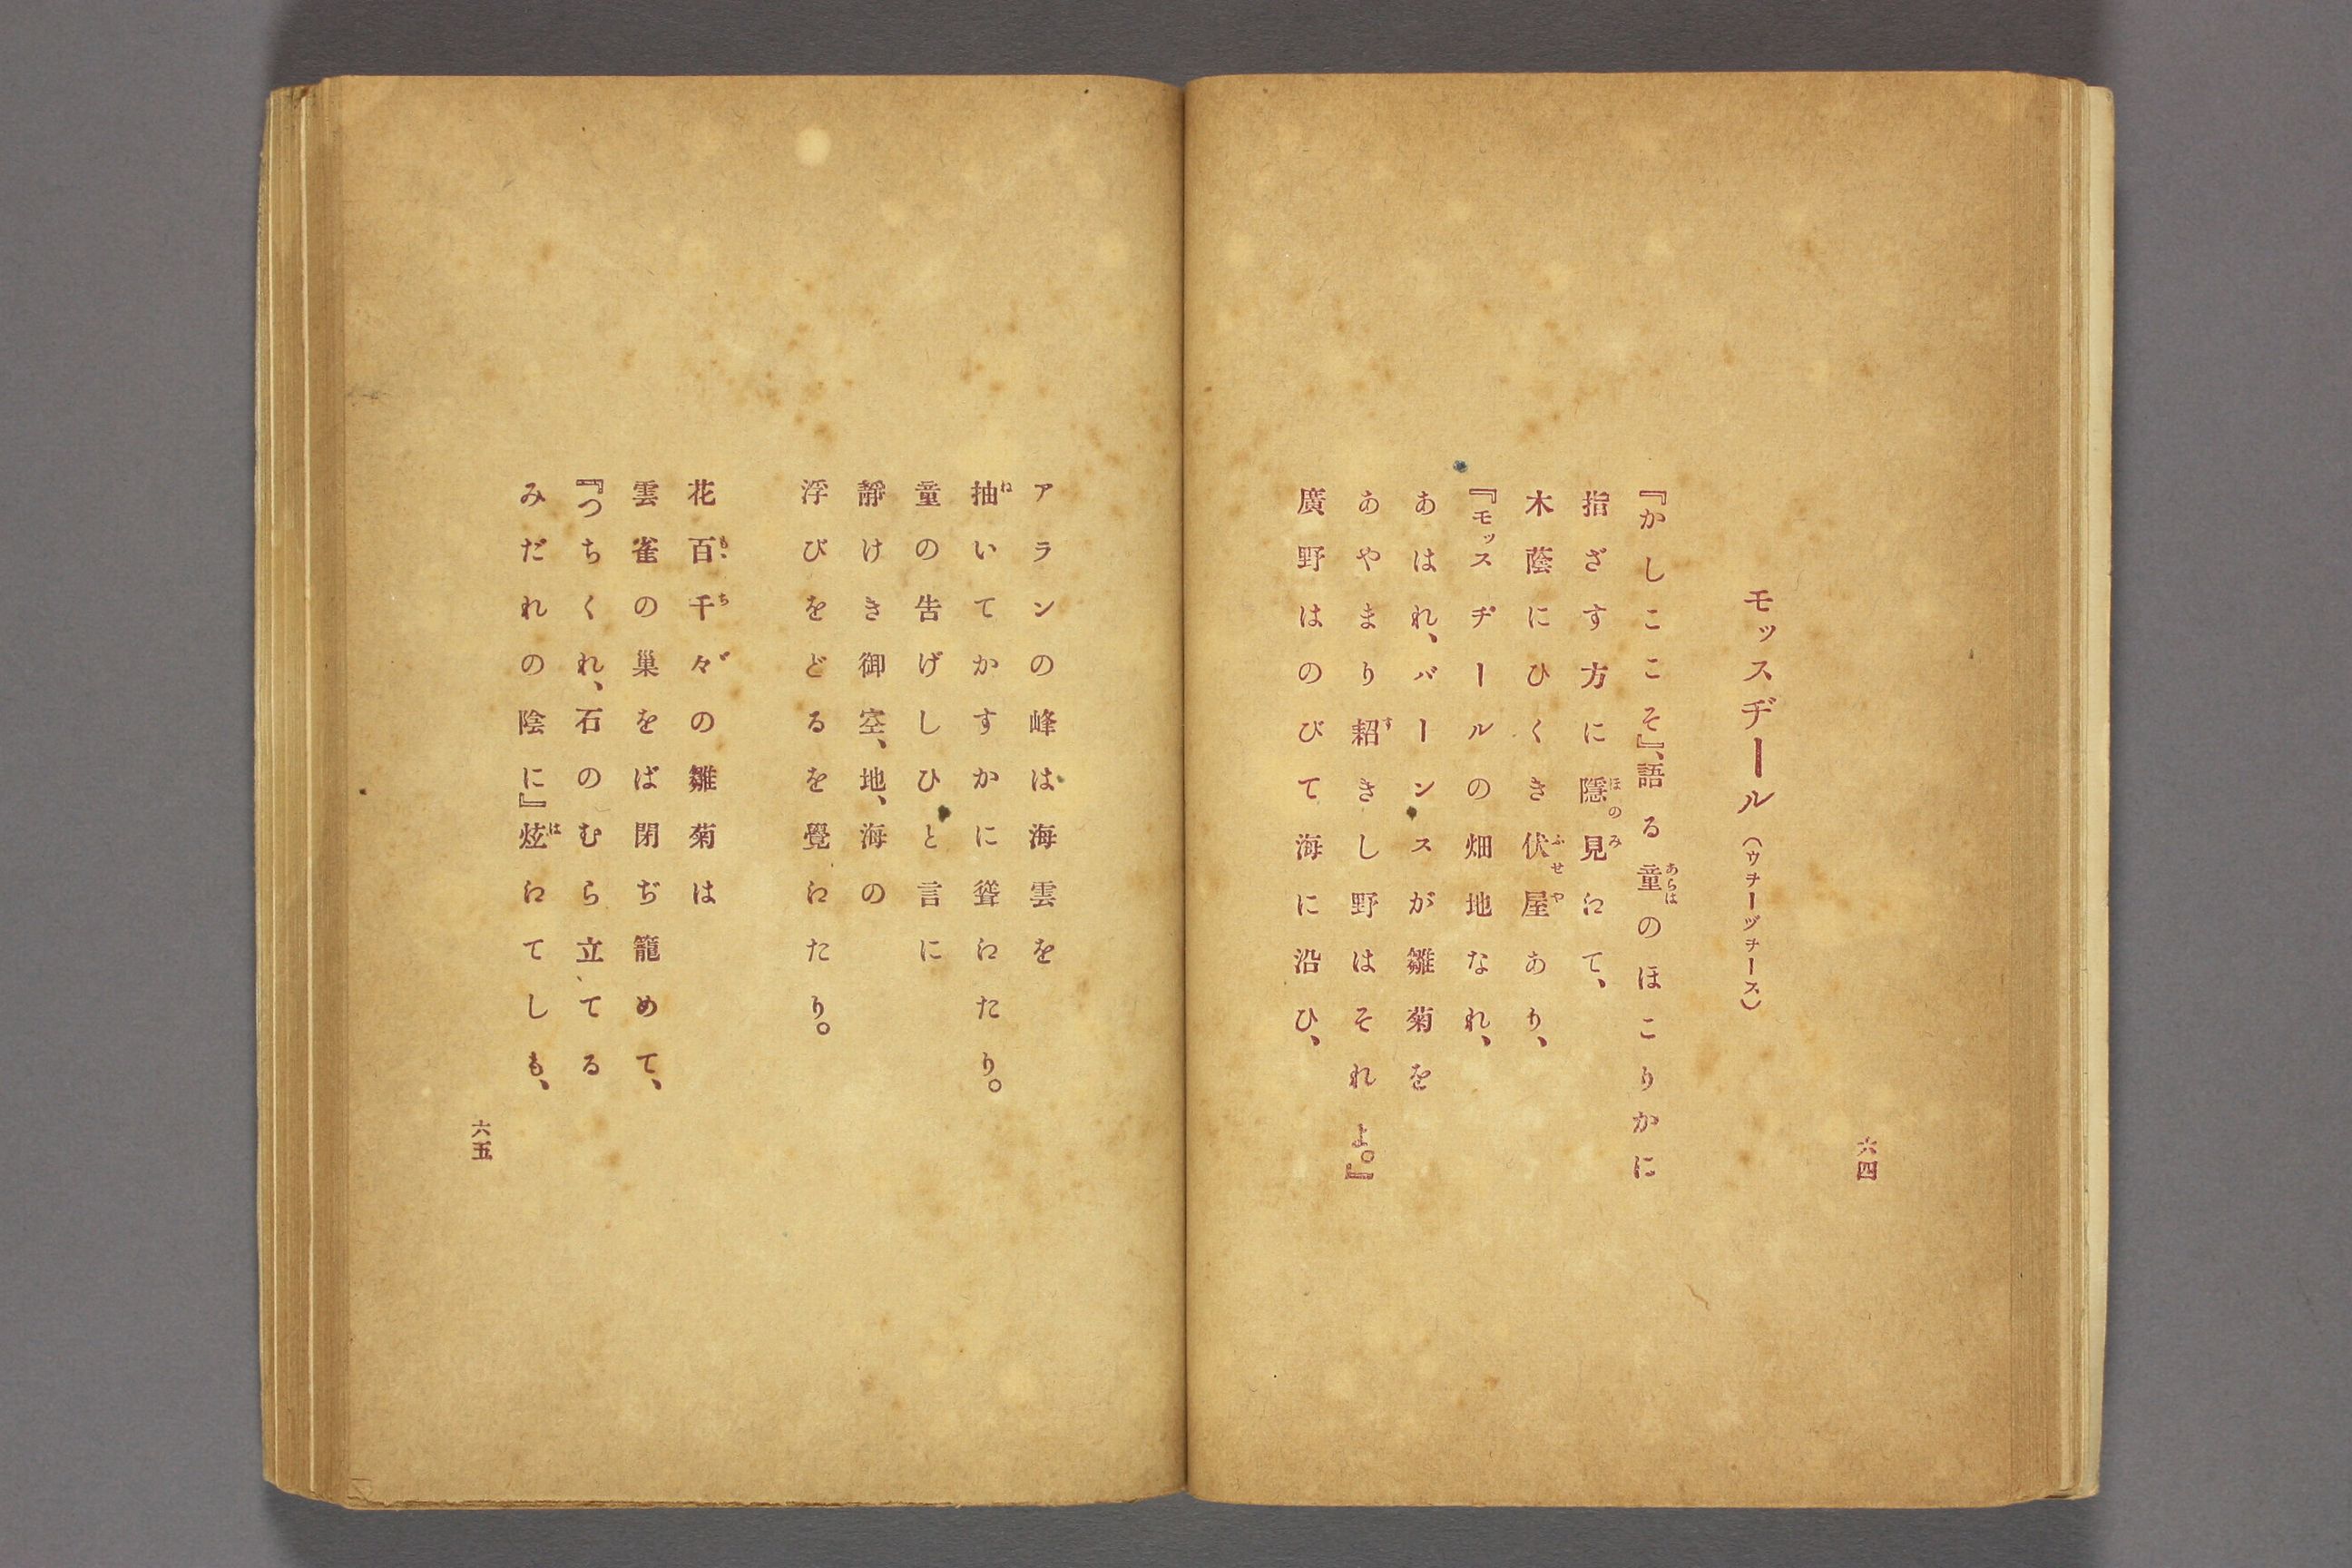 六四
モッスヂール（ウヰーヅヰース）
『かしここそ』、語る童のほこりかに
指ざす方に隱見えて、
木蔭にひくき伏屋あり、
『モッスヂールの畑地なれ、
あはれ、バーンスが雛菊を
あやまり耜きし野はそれよ。』
廣野はのびて海に沿ひ、
アランの峰は海雲を
抽いてかすかに聳えたり。
童の告げしひと言に
靜けき御空、地、海の
浮びをどるを覺えたり。
花百千々の雛菊は
雲雀の巢をば閉ぢ籠めて、
『つちくれ、石のむら立てる
みだれの陰に』炫えてしも、
六五